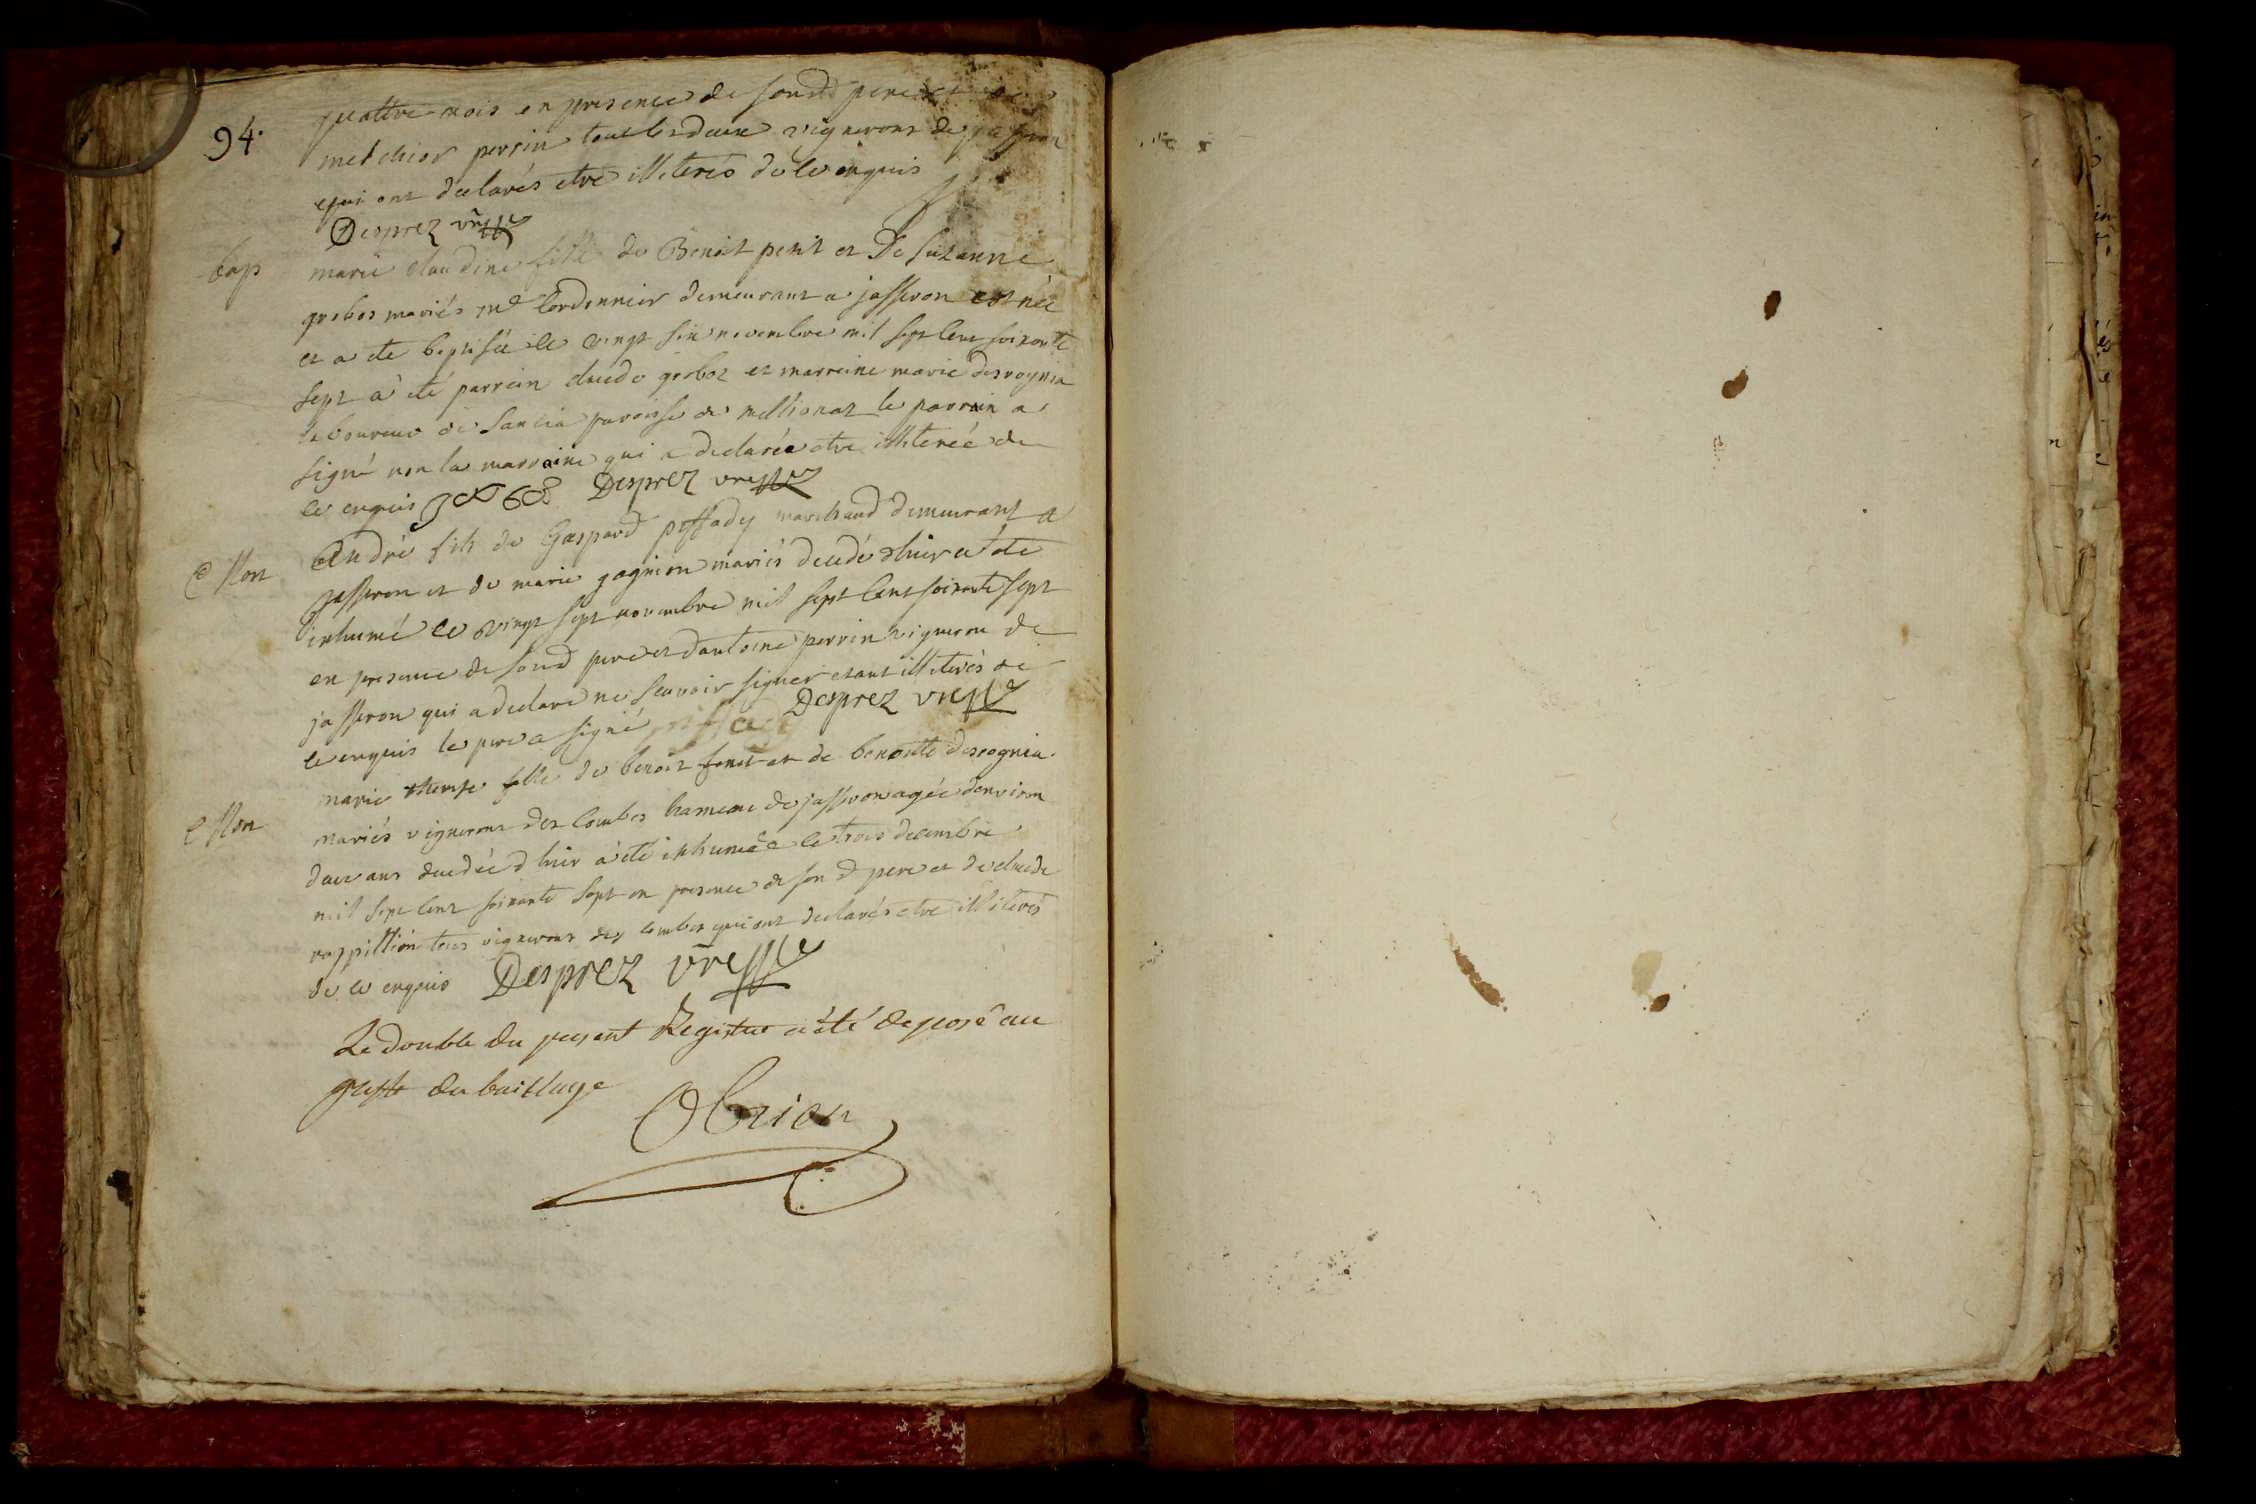 94.
quattre mois en presence de sond pere et de
melchior perrin tout les deux vignerons de jasseron
qui ont declarés etre illiterés de ce enquis
Desprez vre
bap
marie claudine fille de Benoit petit et De Suzanne
grobos mariés md cordonnier demeurant a jasseron est née
et a ete baptisée le vingt six novembre mil sept cent soixante
sept a été parrein claude groboz et marreine marie desvognia
laboureur de sancia paroisse de mellionat le parrain a
signé non la marraine qui a declarée etre illiterée de
ce enquis Desprez vre
André fils de Gaspard pissady marchand demeurant a
jasseron et de marie gagnion mariés decedé d'hier a été
inhumé ce vingt sept novembre mil sept cent soixante sept
en presence de sond pere et d'antoine perrin vigneron de
jasseron qui a declaré ne scavoir signer etant illiterés de
ce enquis le pere a signé pissady Desprez vre
marie therese fille de benoit et de benoitte desvognia
mariés vignerons des combes hameau de jasseron agée d'environ
deux ans decedée d'hier a été inhumée ce trois decembre
mil sept cent soixante sept en presence de son d pere et de claude
tous vignerons des combes qui ont declarés etre illiterés
de ce enquis Desprez vre
Le double du present Registre a été deposé au
greffe du bailliage
Obrion